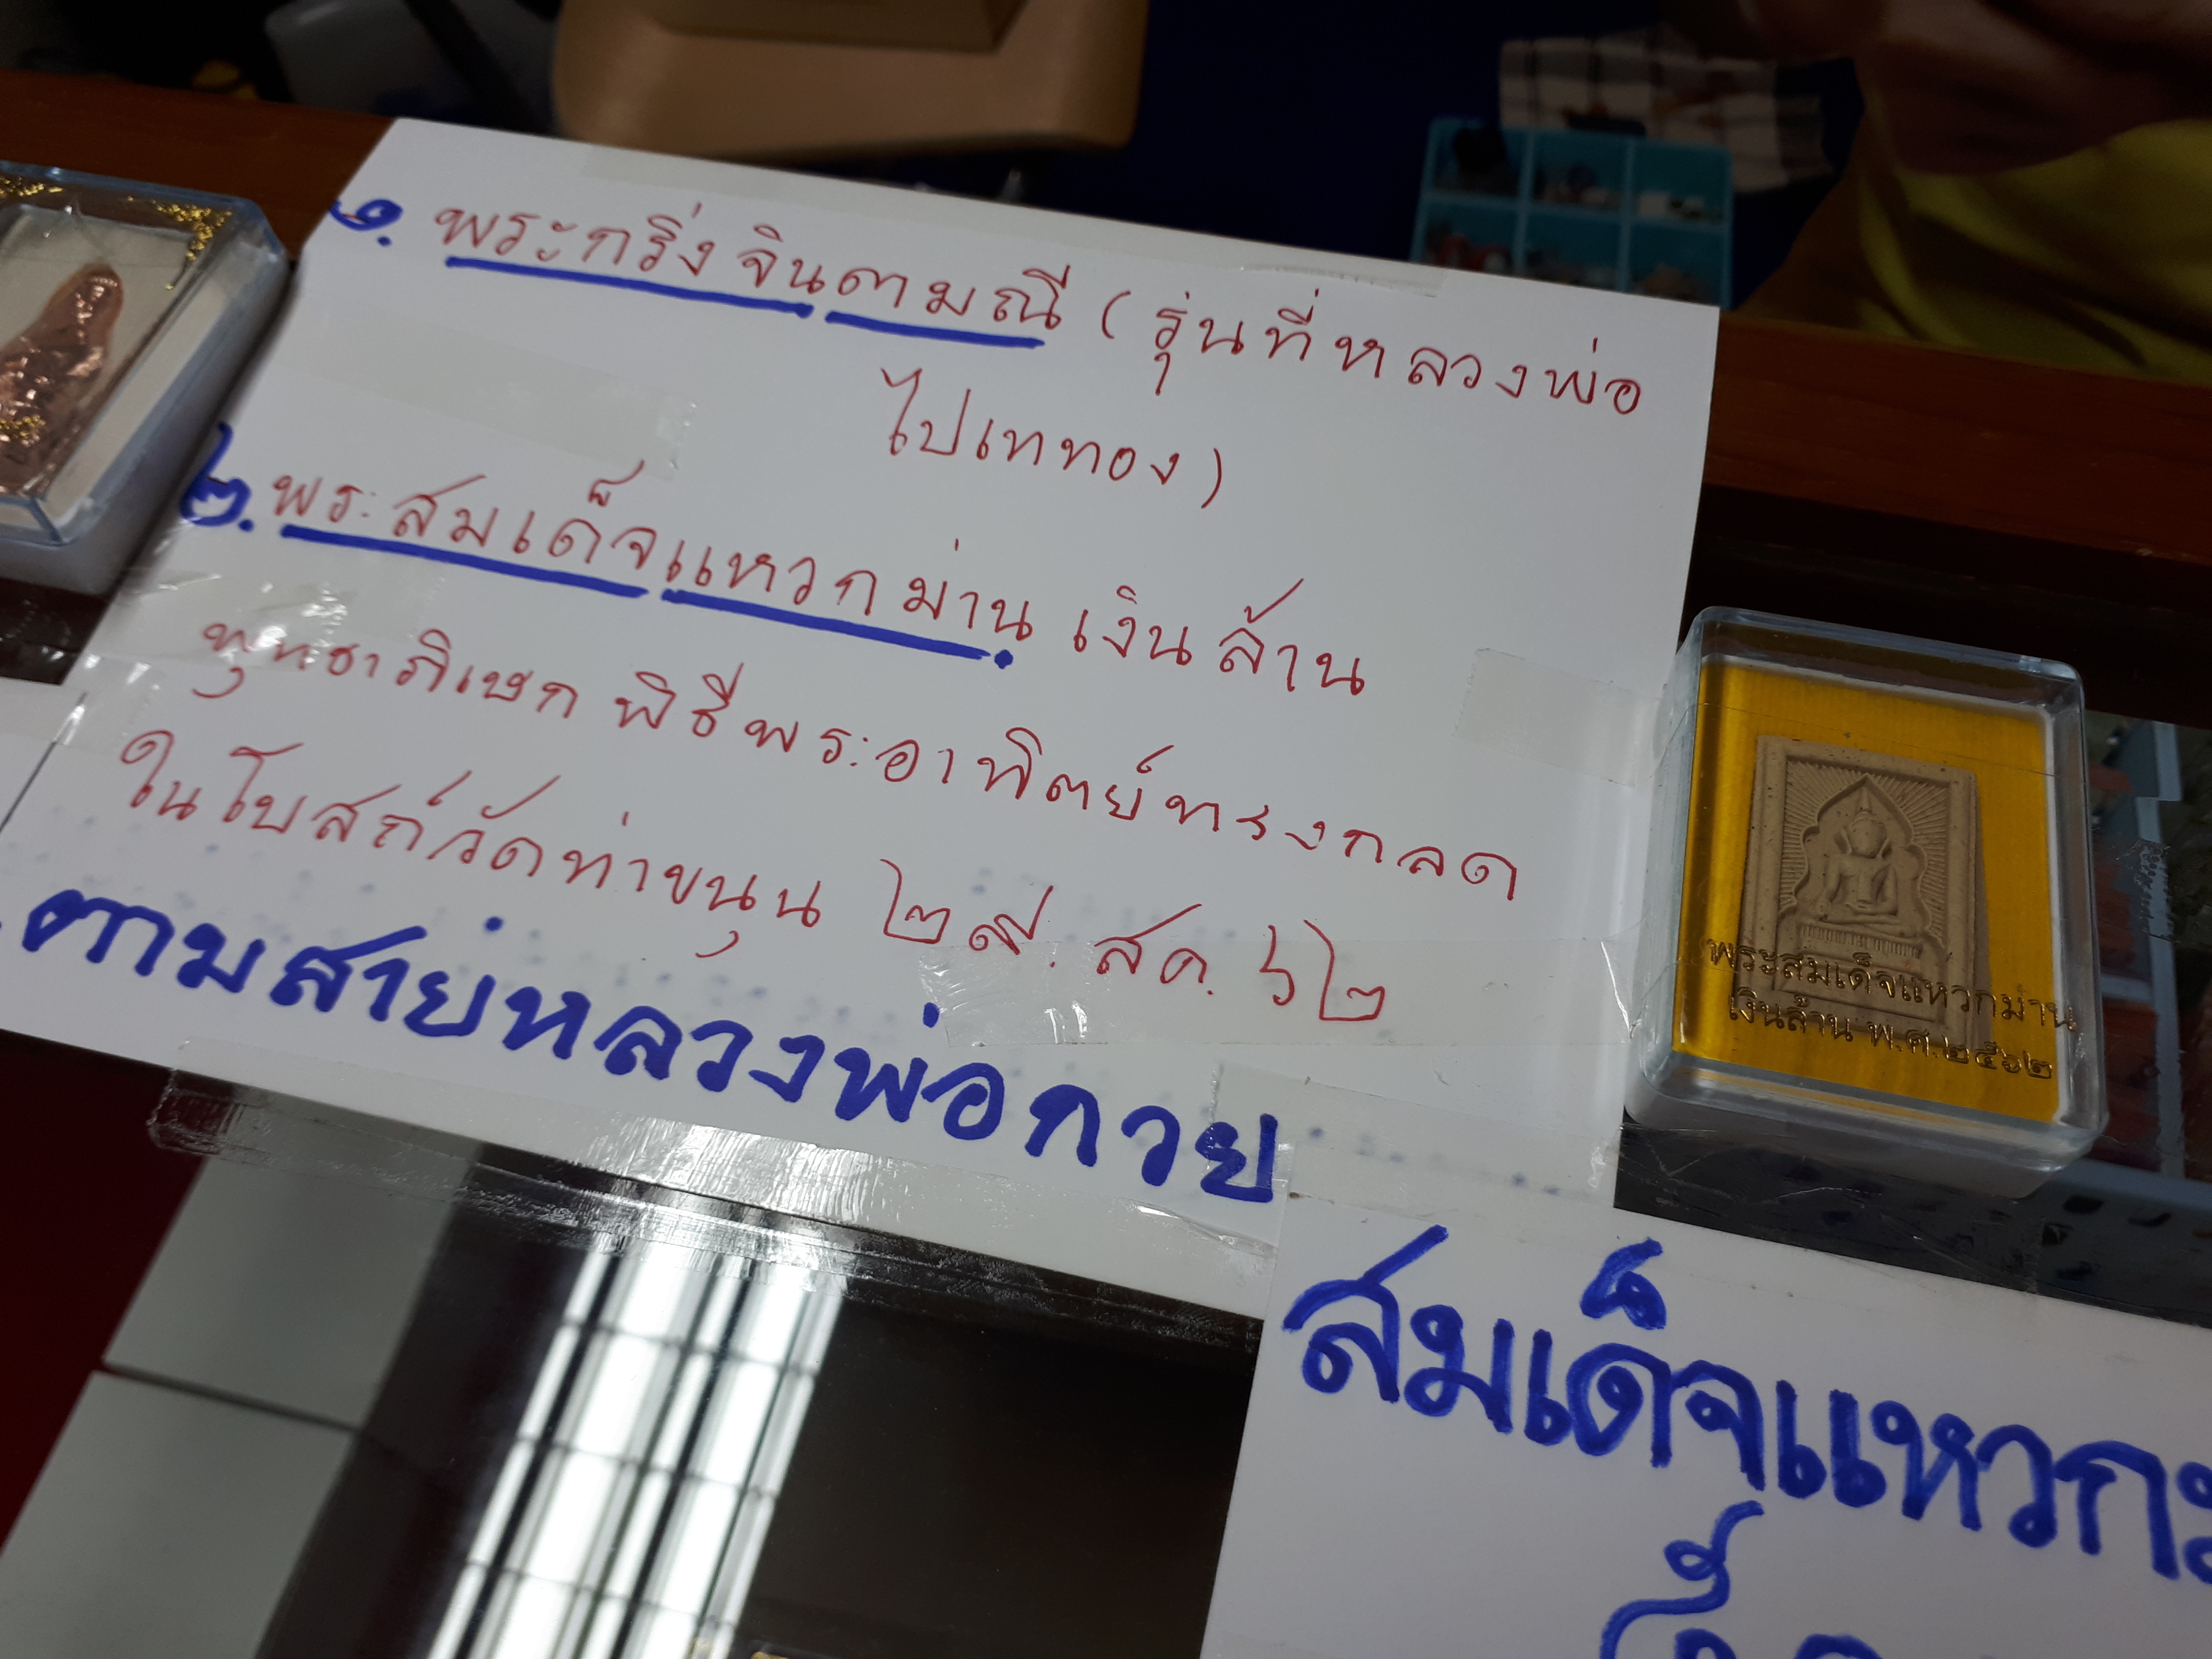 ๑. พระกริ่งจินดามณี (รุ่นที่หลวงพ่อ
ไปเททอง)
๒. พระสมเด็จแหวกม่าน เงินล้าน
พุทธาภิเษก พิธีพระอาทิตย์ทรงกลด
ในโบสถ์วัดท่าขนุน ๒๙. สค. ๖๒
ตามสายหลวงพ่อกวย
พระสมเด็จแหวกม่าน
เงินล้าน พ.ศ.๒๕๖๒
สมเด็จแหวกม